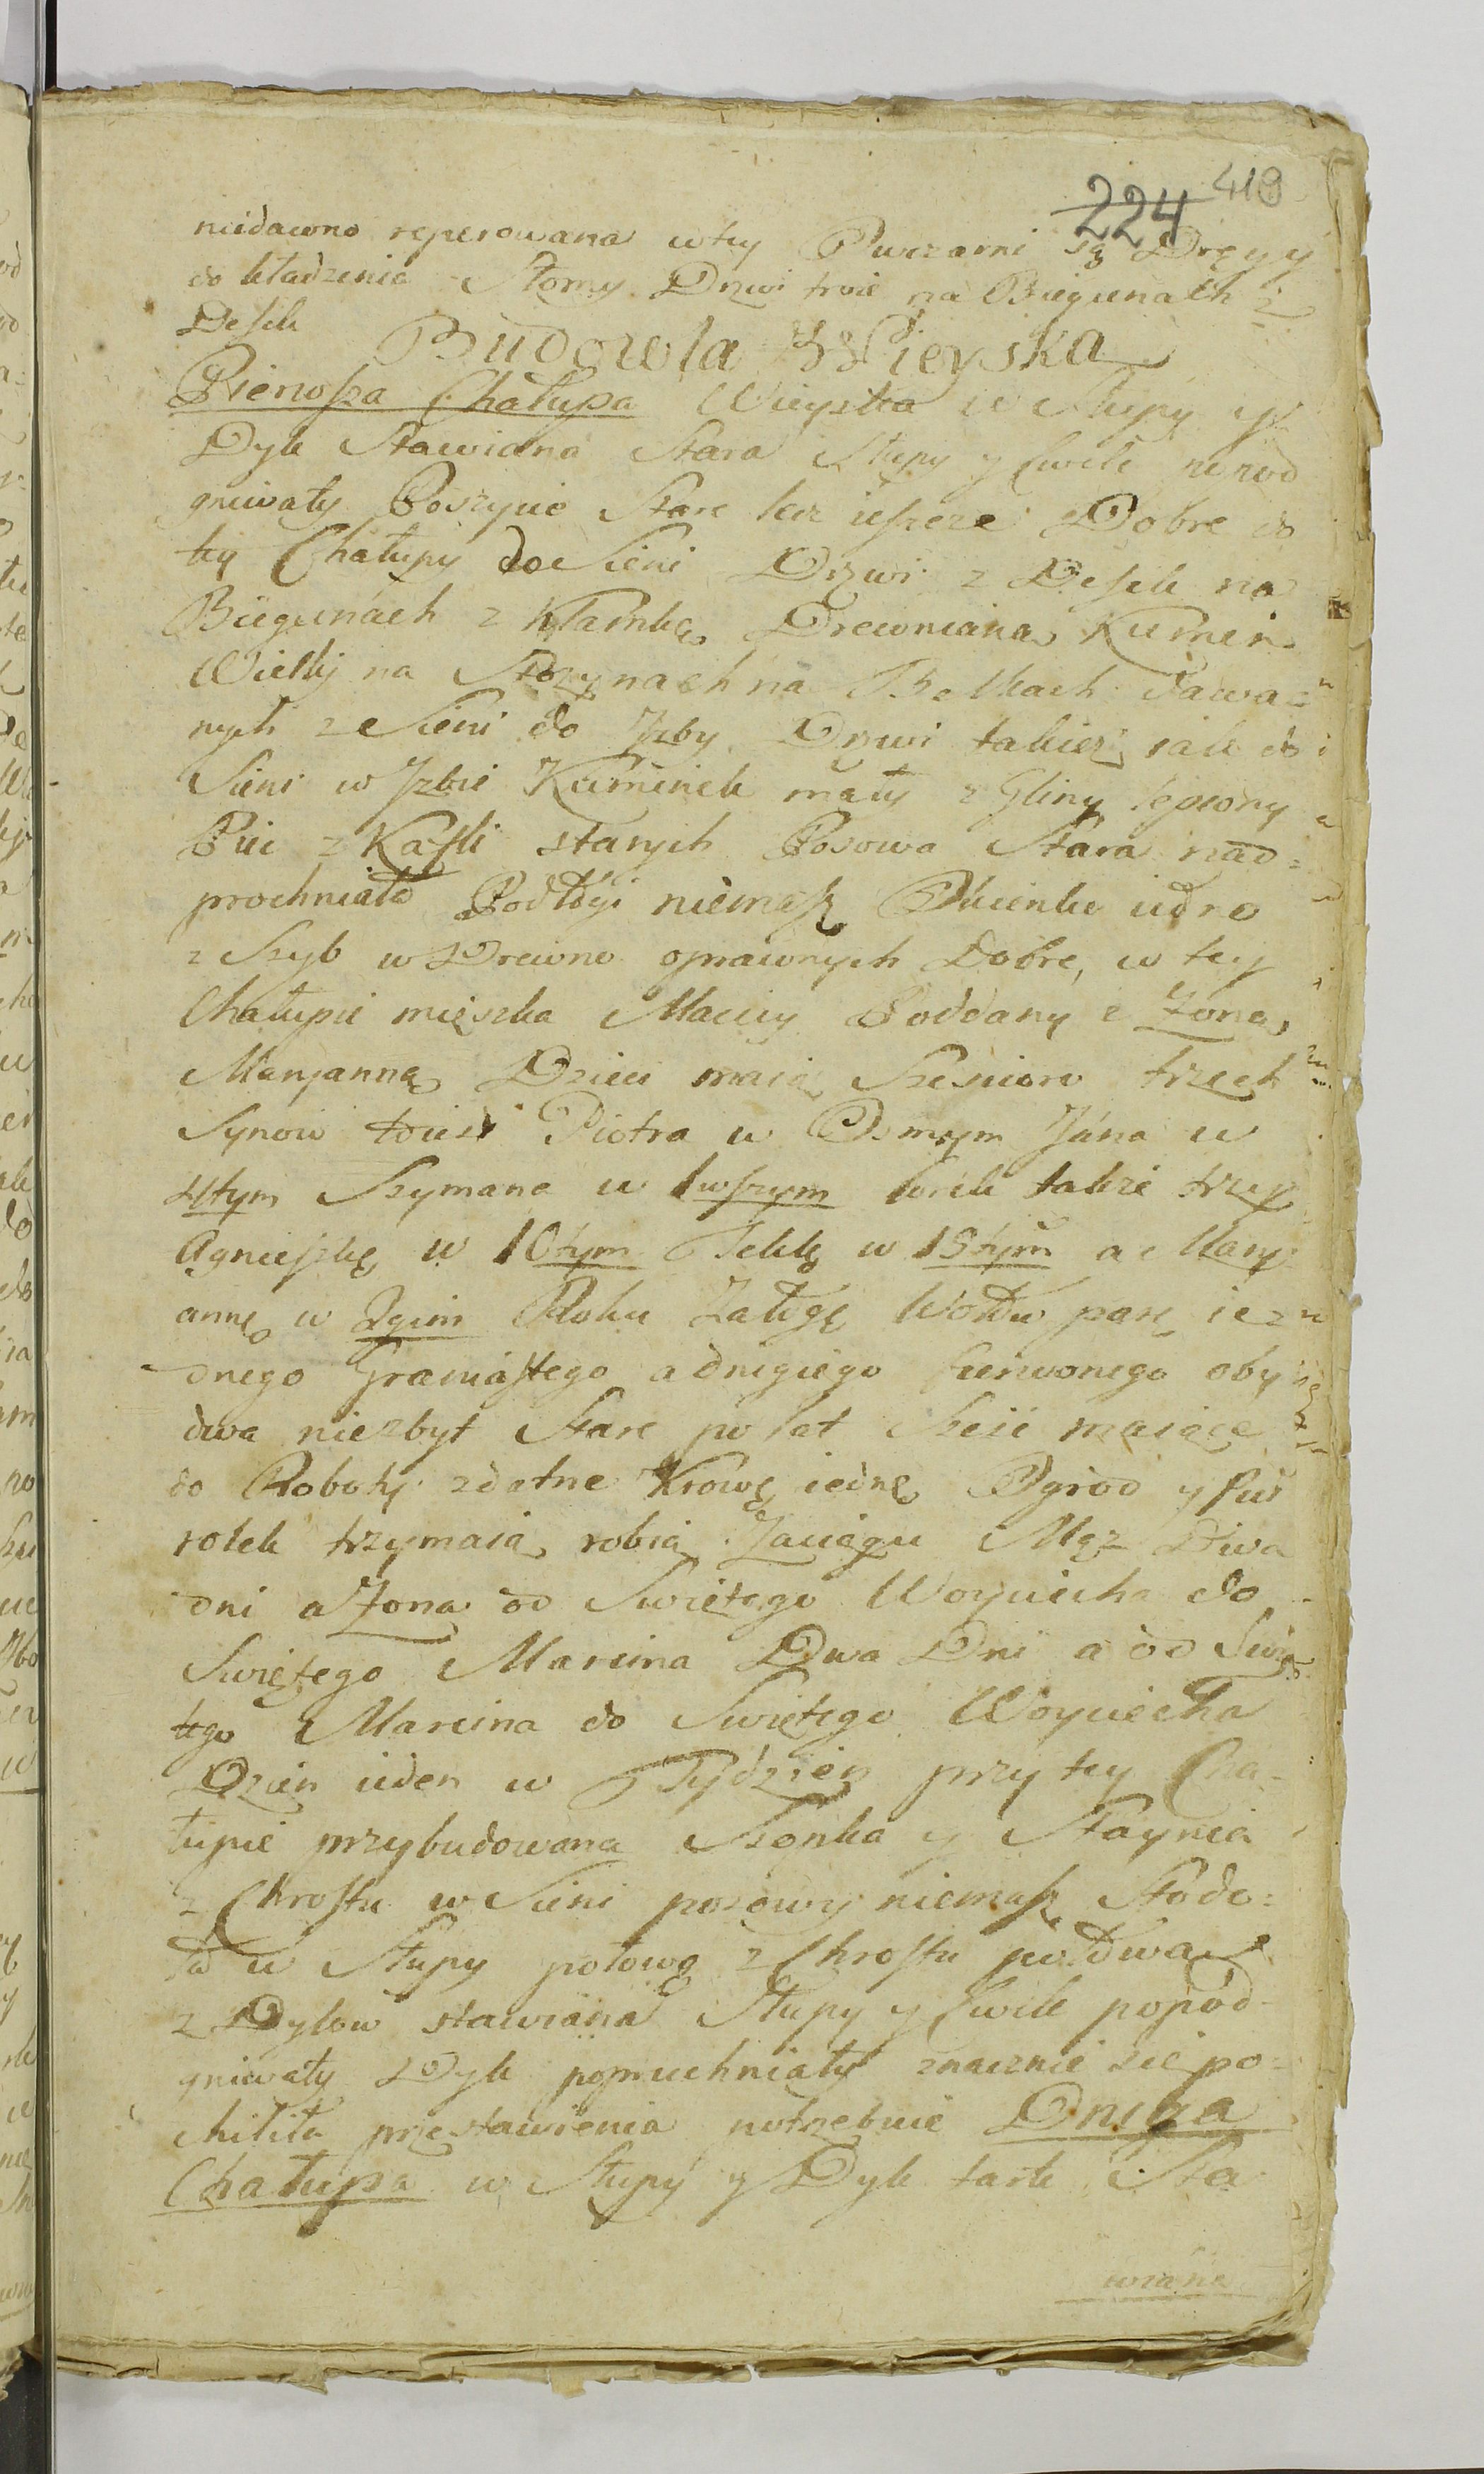 224 419
niedawno reperowana wtey Owczarni są Drągi
do kładzenia Słomy Drzwi troie na Biegunach z
Desek Budowla Wieyska
Pierwsza Chałupa Wieyska w Słupy y
Dyle Stawiana Stara Słupy y Cwele
gniwały Poszycie Stare lecz ieszcze Dobre do
tey Chałupy do Sieni Drzwi z Desek na
Biegunach z Klamką Drewnianą Kumin
Wielki na Stozynach na Belkach dawa=
nych z Sieni do Jzby Drzwi takiez iak do
Sieni w Jzbie Kuminek mały z Gliny lepiony
Piec z Kafli starych Posowa Stara nad=
prochniała Podłogi niemasz Okienko iedno
z Szyb w Drewno oprawnych Dobre, w tey
Chałupie mięszka Maciey Poddany z Zoną
Maryanną Dzieci maią Szescioro trzech
Synow toiest Piotra w Osmym Jana w
4tym Szymana w 1wszym Corek takze trzy
Agnieszkę w 10tym Teklę w 15tym a Mary
annę w 2gim Roku Załogę Wołów parę ie=
dnego Graniastego a drugiego Czerwonego oby
dwa niezbyt Stare po lat Sześć maiące
do Roboty zdatne Krowę iednę Ogrod y
rolek trzymaią robią Zaciągu Mąz Dwa
dni a Zona od Swiętego Woyciecha do
Swiętego Marcina Dwa Dni a od Swię
tego Marcina do Swiętego Woyciecha
Dzien ieden w Tydzien przy tey Cha=
łupie przybudowana Szopka y Staynia
z Chrostu w Sieni posowy niemasz Stodo=
ła w Słupy połowę z Chrostu
z Dylow stawiana Słupy y Cwele popod=
gniwały Dyle poprochniały znacznie się po=
chiliła przestawienia potrzebuie Druga
Chałupa w Słupy y Dyle tarte Sta
wiana